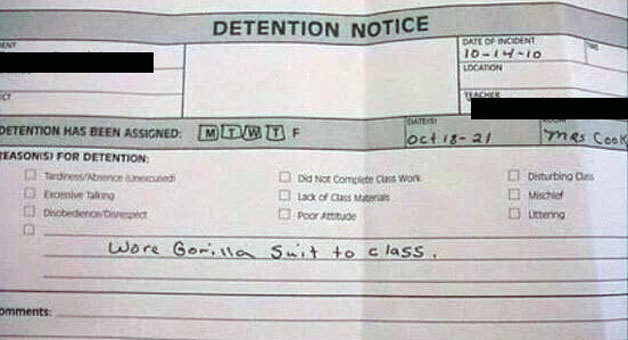 DETENTION NOTICE
DATE OF INCIDENT
10-14-10
LOCATION
TEACHER
DETENTION HAS BEEN ASSIGNED: M T W T F
DATE(S)
Oct 18-21
Mrs Cook
REASON(S) FOR DETENTION:
Tardiness/Absence (Unexcused)
Did Not Complete Class Work
Disturbing Class
Excessive Talking
Lack of Class Materials
Mischief
Disobedience/Disrespect
Poor Attitude
Littering
Wore Gorilla Suit to class.
omments: